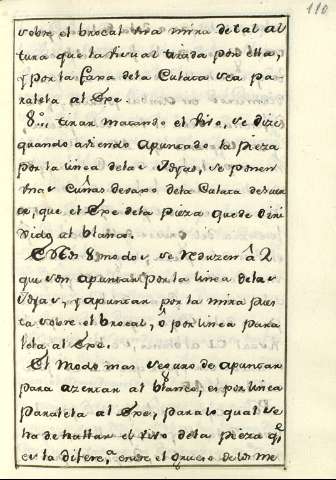 110
sobre el brocal una mira de tal al
tura que la visual tirada por ella,
y por la faxa dela Culata sea pa-
ralela al Exe.
8.º, tirar matando el vivo, se dize
quando aviendo apuntado la pieza
por la linea delas Joyas, se ponen
unas Cuñas debaxo dela Culata de suer
te, que el Exe dela pieza quede diri
gido al blanco.
Estos 8 modos, se reduzen â 2
que son apuntar por la linea delas
Joyas, y apuntar por la mira pues
ta sobre el brocal, ô por linea para
lela al Exe.
El Modo mas seguro de apuntar
para azertar al blanco, es por linea
paralela al Exe, para lo qual se
ha de hallar el vivo dela pieza q.e
es la difere.a entre el grueso de los me